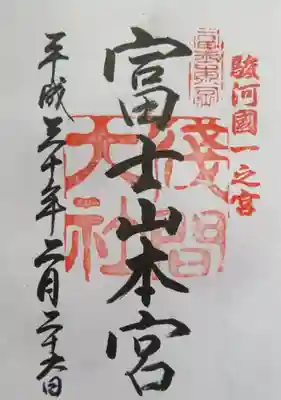 駿河國一之宮
富士山本宮
淺間大社
平成三十年二月二十六日